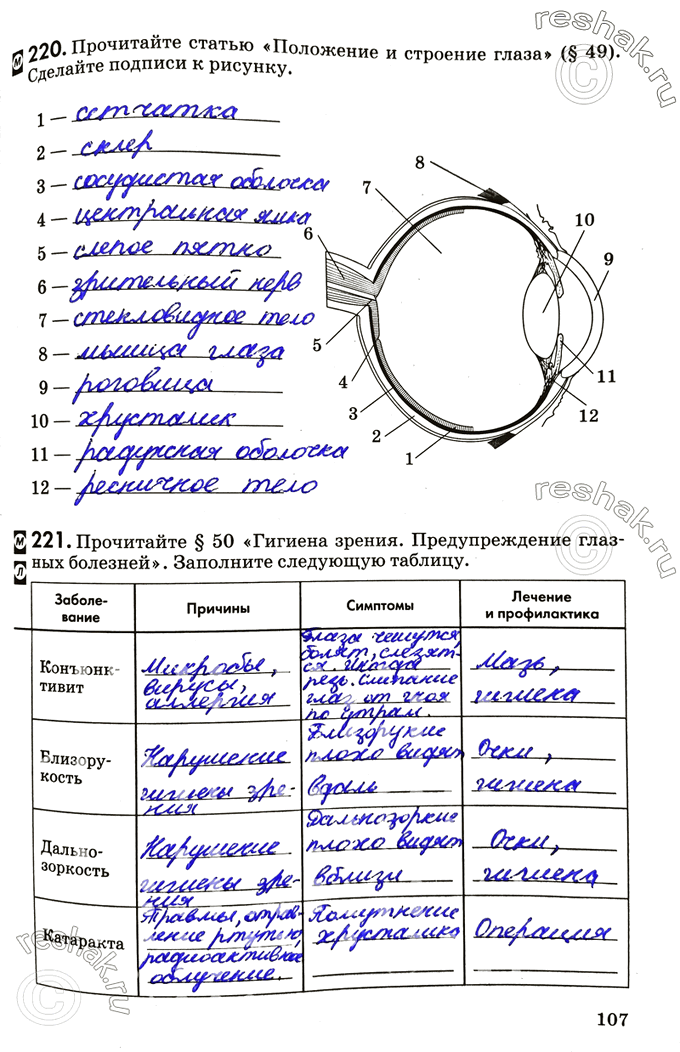 220. Прочитайте статью «Положение и строение глаза» (§ 49).
Сделайте подписи к рисунку.
1 — сетчатка
2 — склер
3 — сосудистая оболочка
4 — центральная ямка
5 — слепое пятно
6 — зрительный нерв
7 — стекловидное тело
8 — мышца глаза
9 — роговица
10 — хрусталик
11 — радужная оболочка
12 — ресничное тело
8
7
10
9
6
5
4
3
2
1
11
12
221. Прочитайте § 50 «Гигиена зрения. Предупреждение глаз-
ных болезней». Заполните следующую таблицу.
Заболе-
вание
Причины
Симптомы
Лечение
и профилактика
Конъюнк-
тивит
Микробы,
вирусы,
аллергия
Глаза чешутся,
болят, слезят-
ся иногда
резь. Слипание
глаз от гноя
по утрам.
Мазь,
гигиена
Близору-
кость
Нарушение
гигиены зре-
ния
Близорукие
плохо видят
вдаль
Очки,
гигиена
Дально-
зоркость
Нарушение
гигиены зре-
ния
Дальнозоркие
плохо видят
вблизи
Очки,
гигиена
Катаракта
Травмы, отрав-
ление ртутью,
радиоактивное
облучение.
Помутнение
хрусталика
Операция
107
reshak.ru
reshak.ru
reshak.ru
reshak.ru